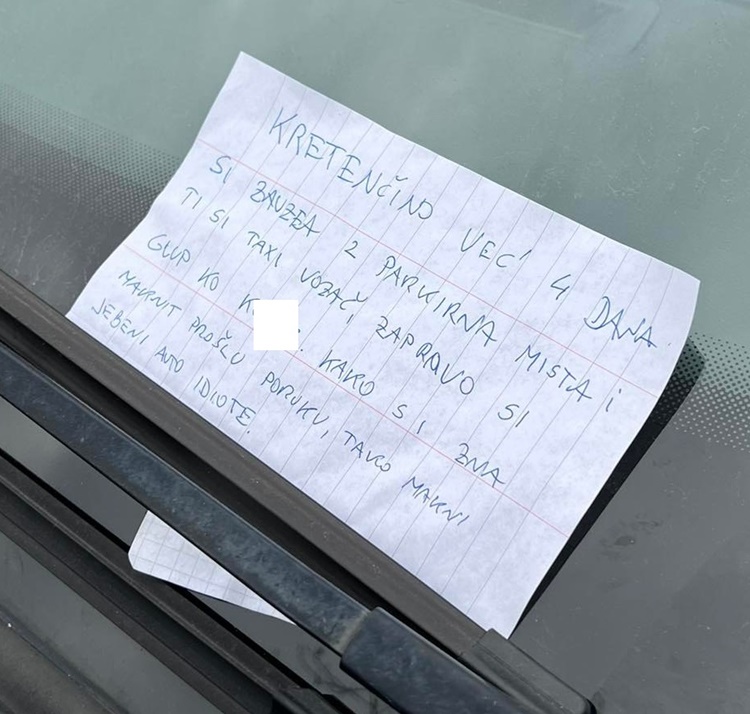 KRETENČINO VEĆ 4 DANA
SI ZAUZEA 2 PARKIRNA MISTA i
TI SI TAXI VOZAČ, ZAPRAVO SI
GLUP KO KAKO SI ZNA
MAKNIT PROŠLU PORUKU, TAKO MAKNI
JEBENI AUTO IDIOTE.